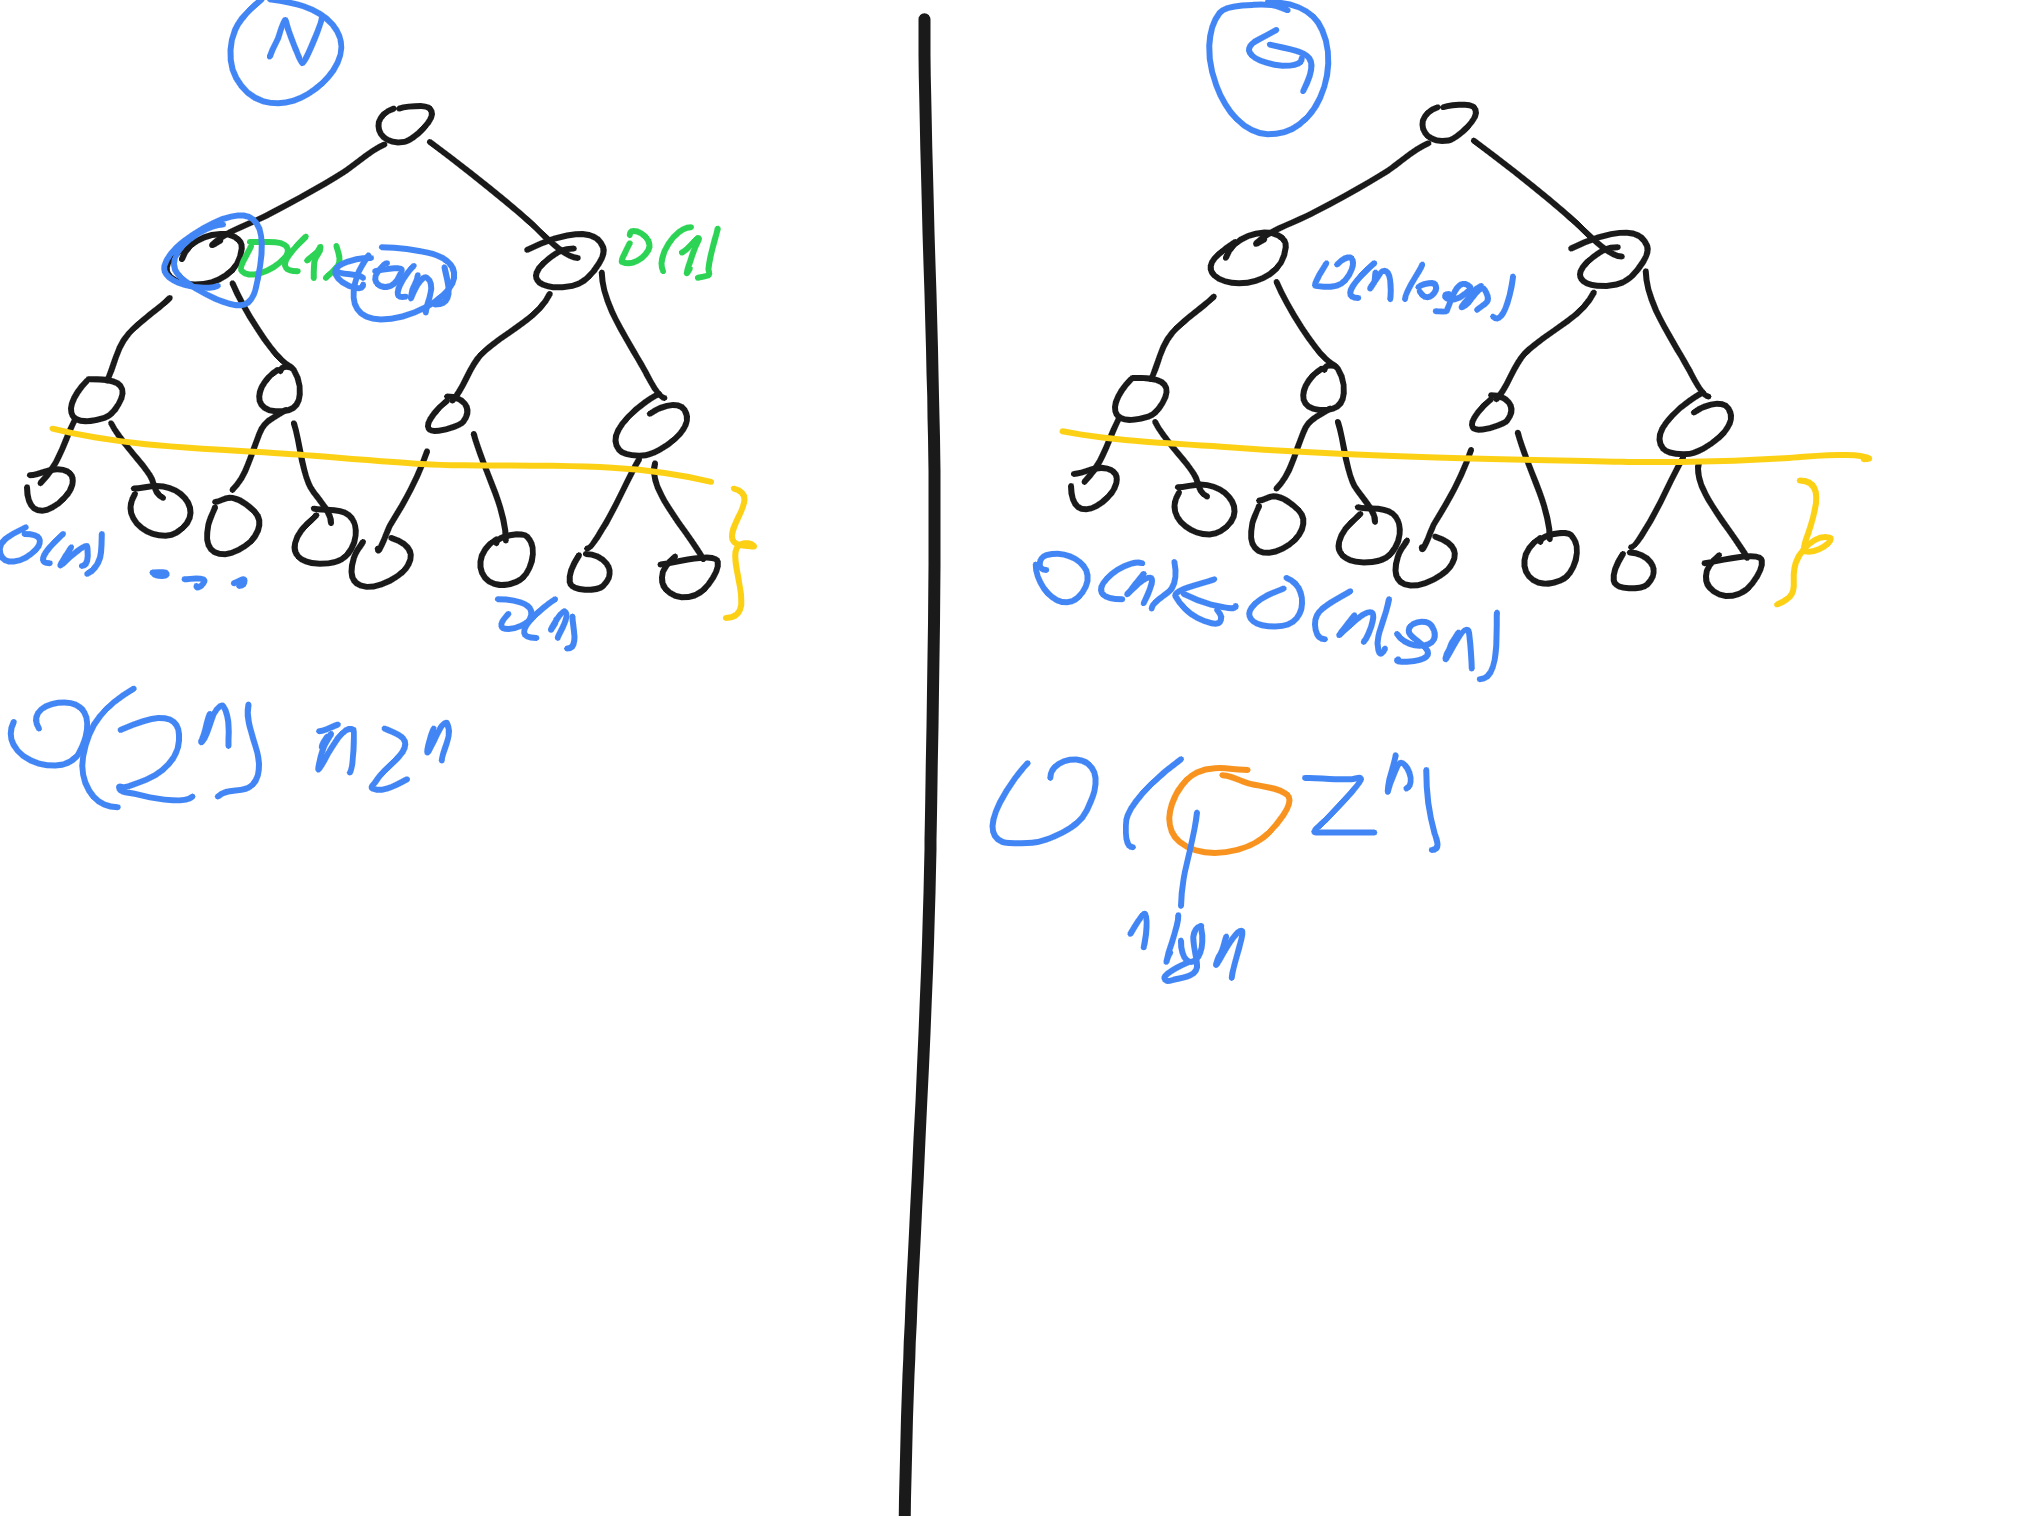 N
O(1)
O(n)
O(1)
O(n)
....
O(n)
O(2^n) n2^n
O(nlogn)
O(n) ← O(nlgn)
O( 2^n)
nlgn